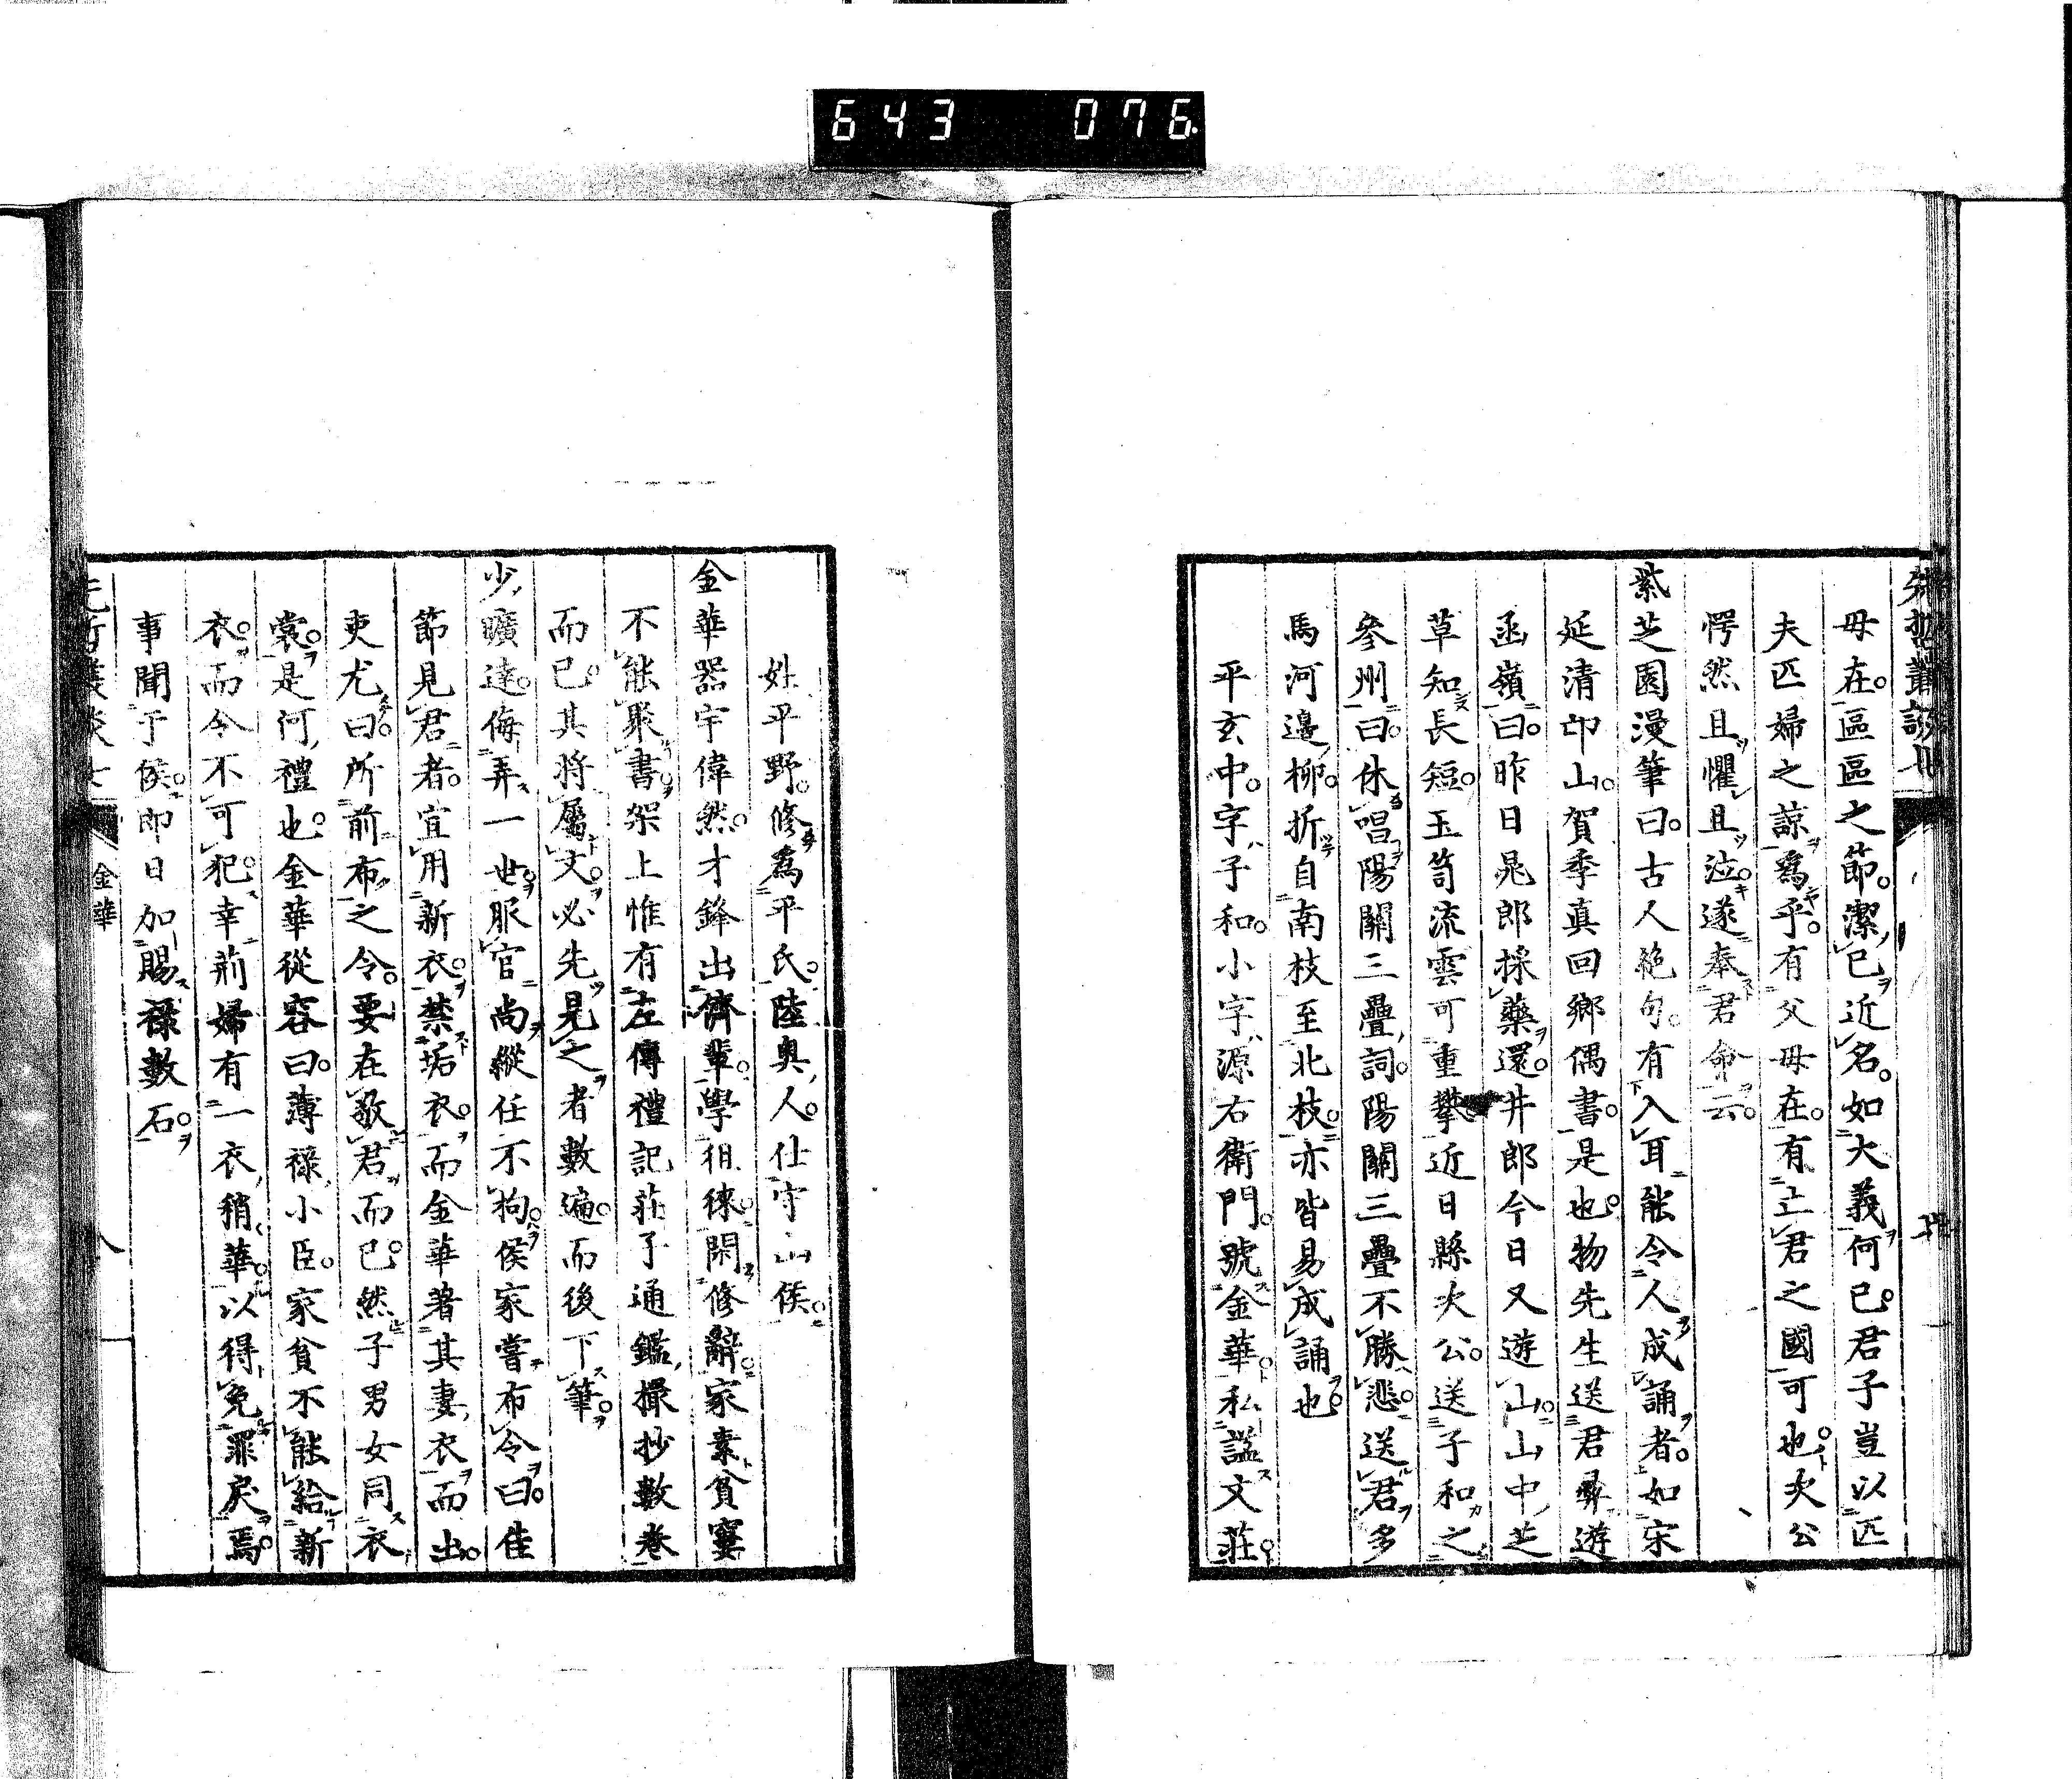 643 076
母在區區之節潔已近名如大義何已君子豈以匹
夫匹婦之諒爲乎有父母在有土君之國可也次公
愕然且懼且泣遂奉君命云
紫芝園漫筆曰古人絶句有入耳能令人成誦者如宋
延清卬山賀季真回鄉偶書是也物先生送君彛遊
函嶺曰昨日晁郎採藥還井郎今日又遊山山中芝
草知長短玉笥流雲可重攀近日縣次公送子和之
參州曰休唱陽關三疊詞陽關三疊不勝悲送君多
馬河邊柳折自南枝至北枝亦皆易成誦也
平玄中字子和小字源右衛門號金華私諡文莊
姓平野修爲平氏陸奥人仕守山侯
金華器宇偉然才鋒出儕輩學徂徠閑修辭家素貧窶
不能聚書架上惟有左傳禮記莊子通鑑撮抄數卷
而已其將屬文必先見之者數遍而後下筆
少曠達侮弄一世服官尚縱任不拘侯家嘗布令曰佳
節見君者宜用新衣禁垢衣而金華著其妻衣而出
吏尤曰所前布之令要在敬君而已然子男女同衣
裳是何禮也金華從容曰薄祿小臣家貧不能給新
衣而令不可犯幸荊婦有一衣稍華以得免罪戾焉
事聞于侯即日加賜祿數石
金華
八